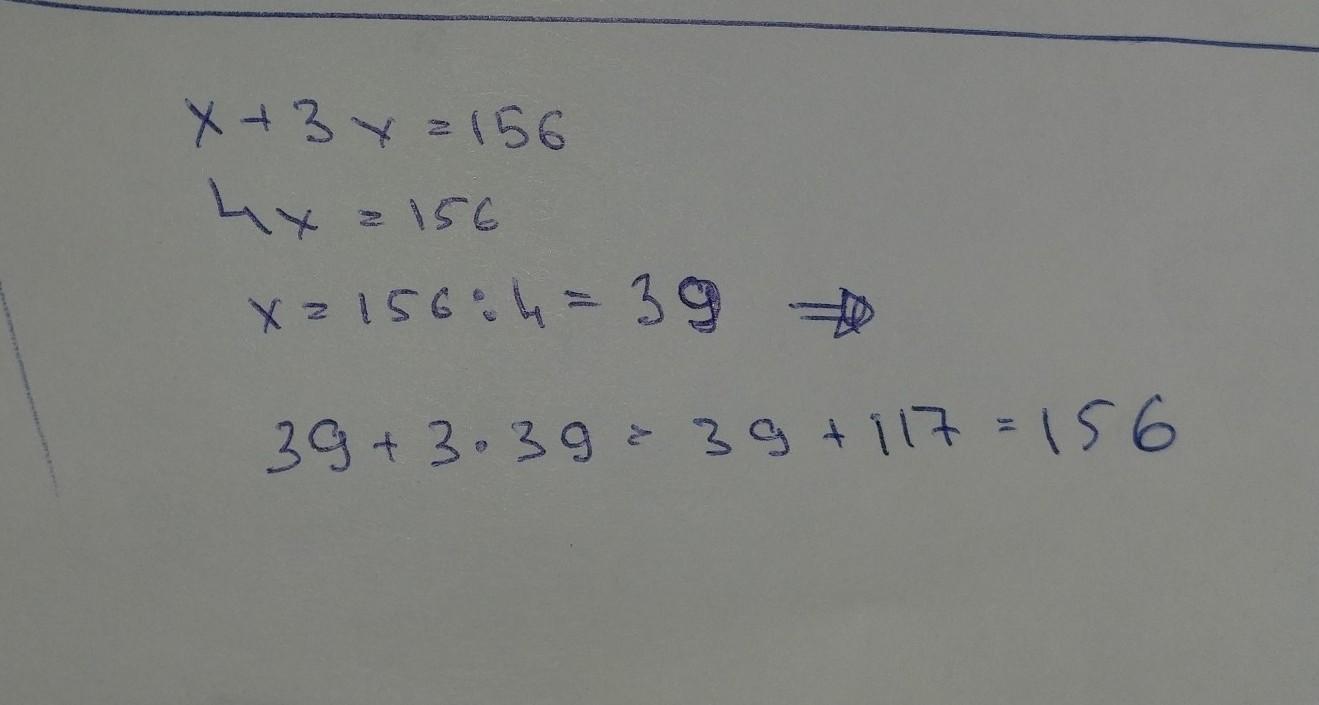 x + 3x = 156
4x = 156
x = 156 : 4 = 39 ⇒
39 + 3 · 39 = 39 + 117 = 156